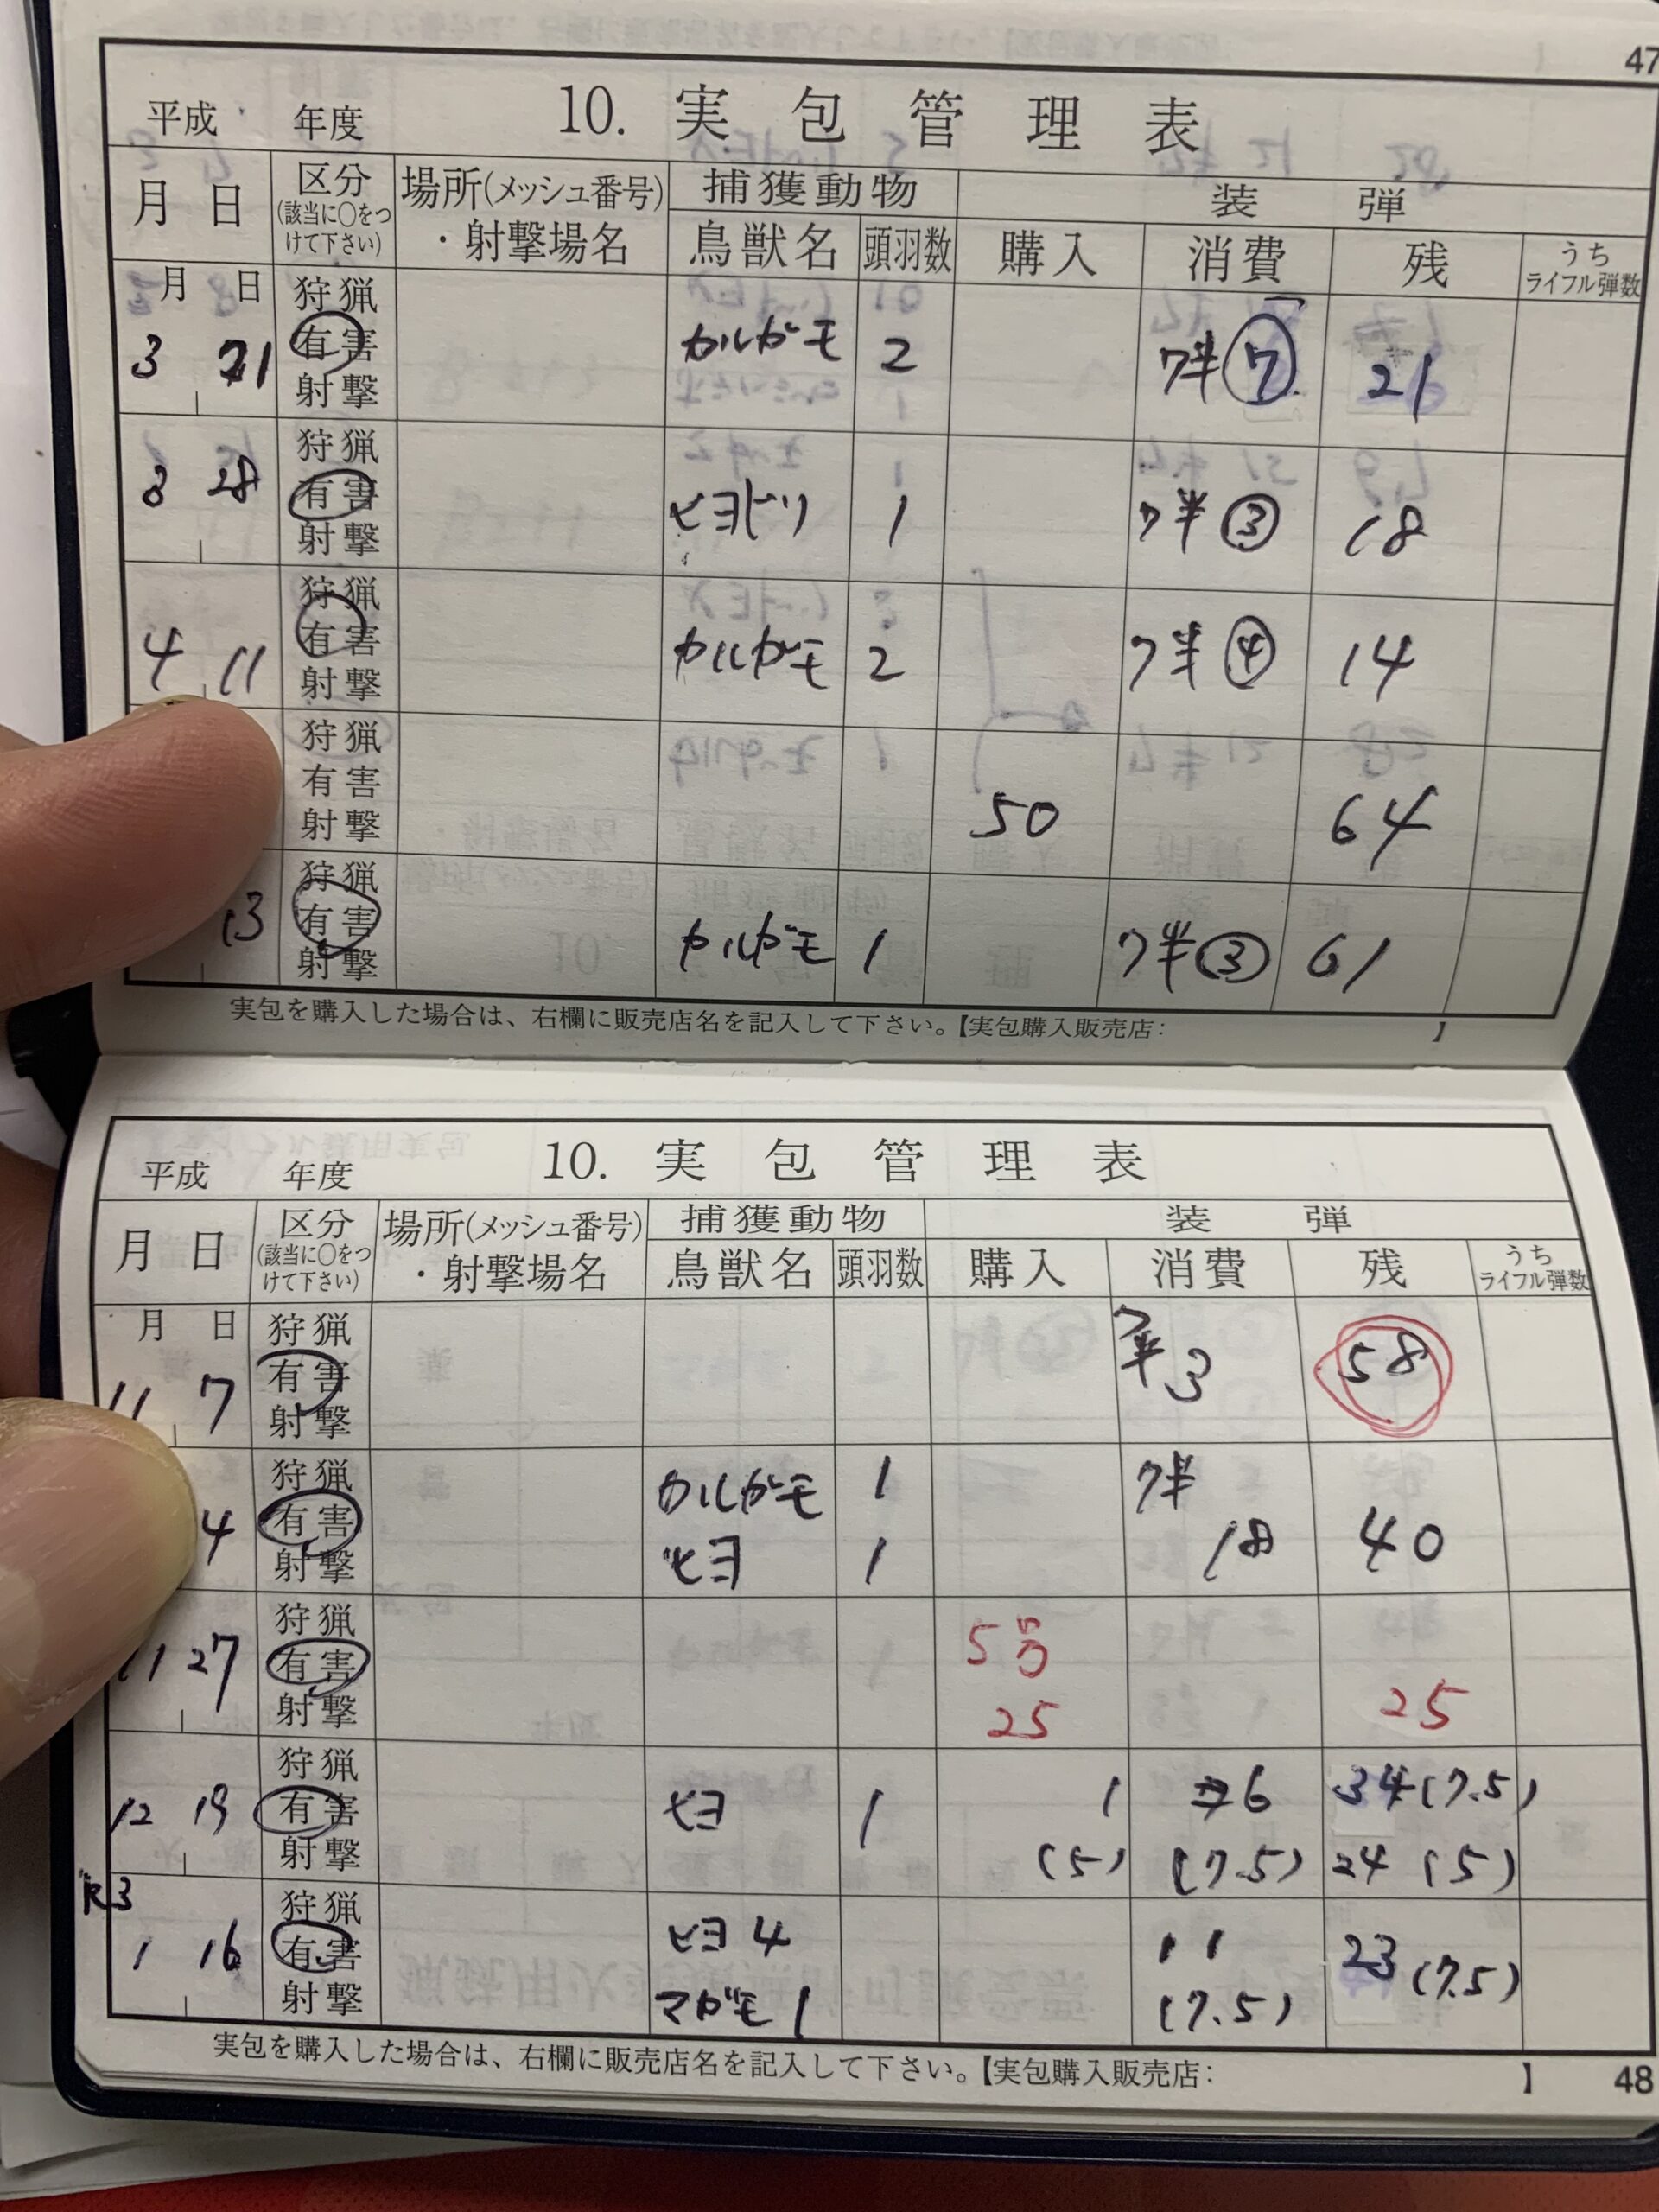 47
平成 年度 10. 実包管理表
月 日 区分 (該当に○をつけて下さい) 場所(メッシュ番号)・射撃場名 捕獲動物 装弾
鳥獣名 頭羽数 購入 消費 残 うちライフル弾数
月 日 狩猟
3 21 有害 カルガモ 2 7半 7 21
射撃
狩猟
3 28 有害 ヒヨドリ 1 7半 3 18
射撃
狩猟
4 11 有害 カルガモ 2 7半 4 14
射撃
狩猟
有害 50 64
射撃
狩猟
13 有害 カルガモ 1 7半 3 61
射撃
実包を購入した場合は、右欄に販売店名を記入して下さい。【実包購入販売店: 】
平成 年度 10. 実包管理表
月 日 区分 (該当に○をつけて下さい) 場所(メッシュ番号)・射撃場名 捕獲動物 装弾
鳥獣名 頭羽数 購入 消費 残 うちライフル弾数
月 日 狩猟
11 7 有害 7半 3 58
射撃
狩猟 カルガモ 1 7半
4 有害 18 40
射撃 ヒヨ 1
狩猟 5号
11 27 有害
射撃 25 25
狩猟 1 6 34(7.5)
12 19 有害 ヒヨ 1
射撃 (5) (7.5) 24(5)
R3 狩猟 ヒヨ4
1 16 有害 11 23(7.5)
射撃 マガモ1 (7.5)
実包を購入した場合は、右欄に販売店名を記入して下さい。【実包購入販売店: 】 48